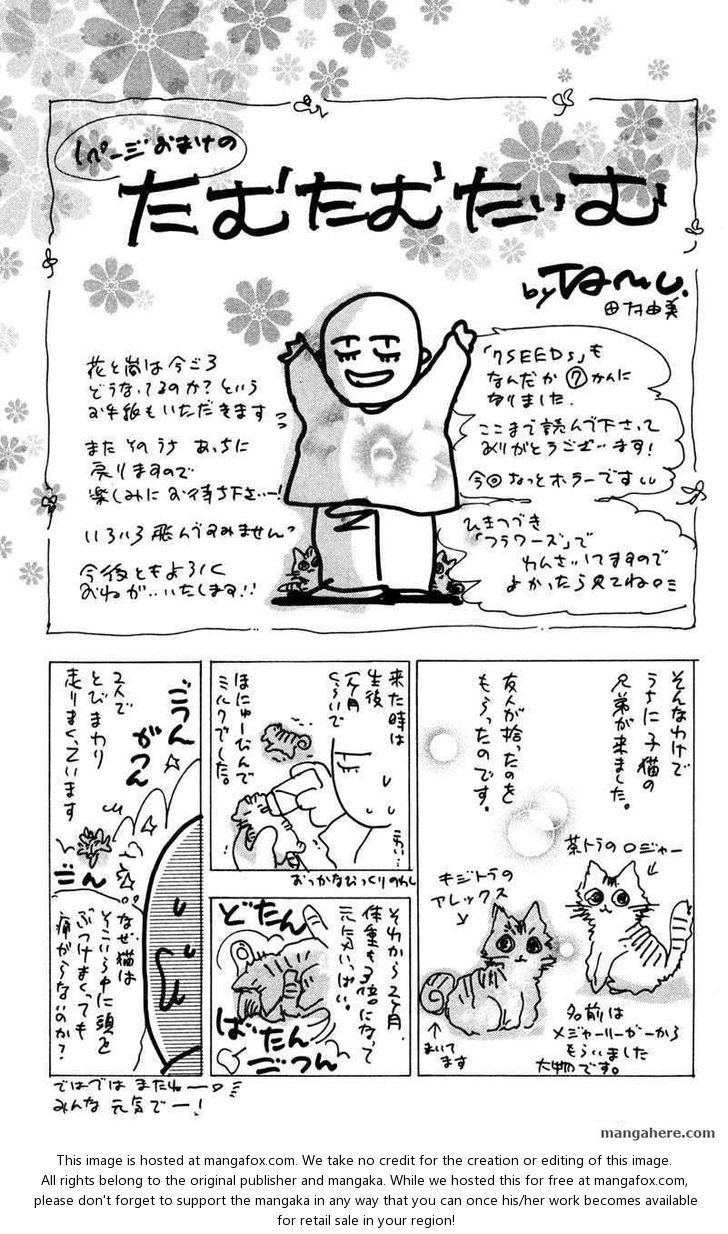 1ページおまけの
たむたむたいむ
by Tamu.
田村由美
「7SEEDS」も
なんだか⑦かんに
なりました.
ここまで読んで下さって
ありがとうございます!
今回ちょっとホラーです
ひきつづき
「フラワーズ」で
れんさいしてますので
よかったら見てね
花と嵐は今ごろ
どうなってるのか?という
お手紙もいただきます
また そのうち あっちに
戻りますので
楽しみに お待ち下さいー!
いろいろ飛んですみません
今後ともよろしく
おねがいいたします!!
そんなわけで
うちに子猫の
兄弟が来ました。
友人が拾ったのを
もらったのです。
茶トラのロジャー
キジトラの
アレックス
まいて
ます
名前は
メジャーリーガーから
もらいました
大物です。
来た時は
生後
1ヶ月
くらいで
ほにゅーびんで
ミルクでした。
おっかなびっくりのわし
それから2ヶ月.
体重も3倍になって
元気いっぱい。
どたん
ばたん
ごつん
ごつん
がつん
2人で
とびまわり
走りまくっています
ごん
なぜ猫は
そこいら中に頭を
ぶつけまくっても
痛がらないのか?
ではでは またねー
みんな 元気でー!
mangahere.com
This image is hosted at mangafox.com. We take no credit for the creation or editing of this image.
All rights belong to the original publisher and mangaka. While we hosted this for free at mangafox.com,
please don't forget to support the mangaka in any way that you can once his/her work becomes available
for retail sale in your region!